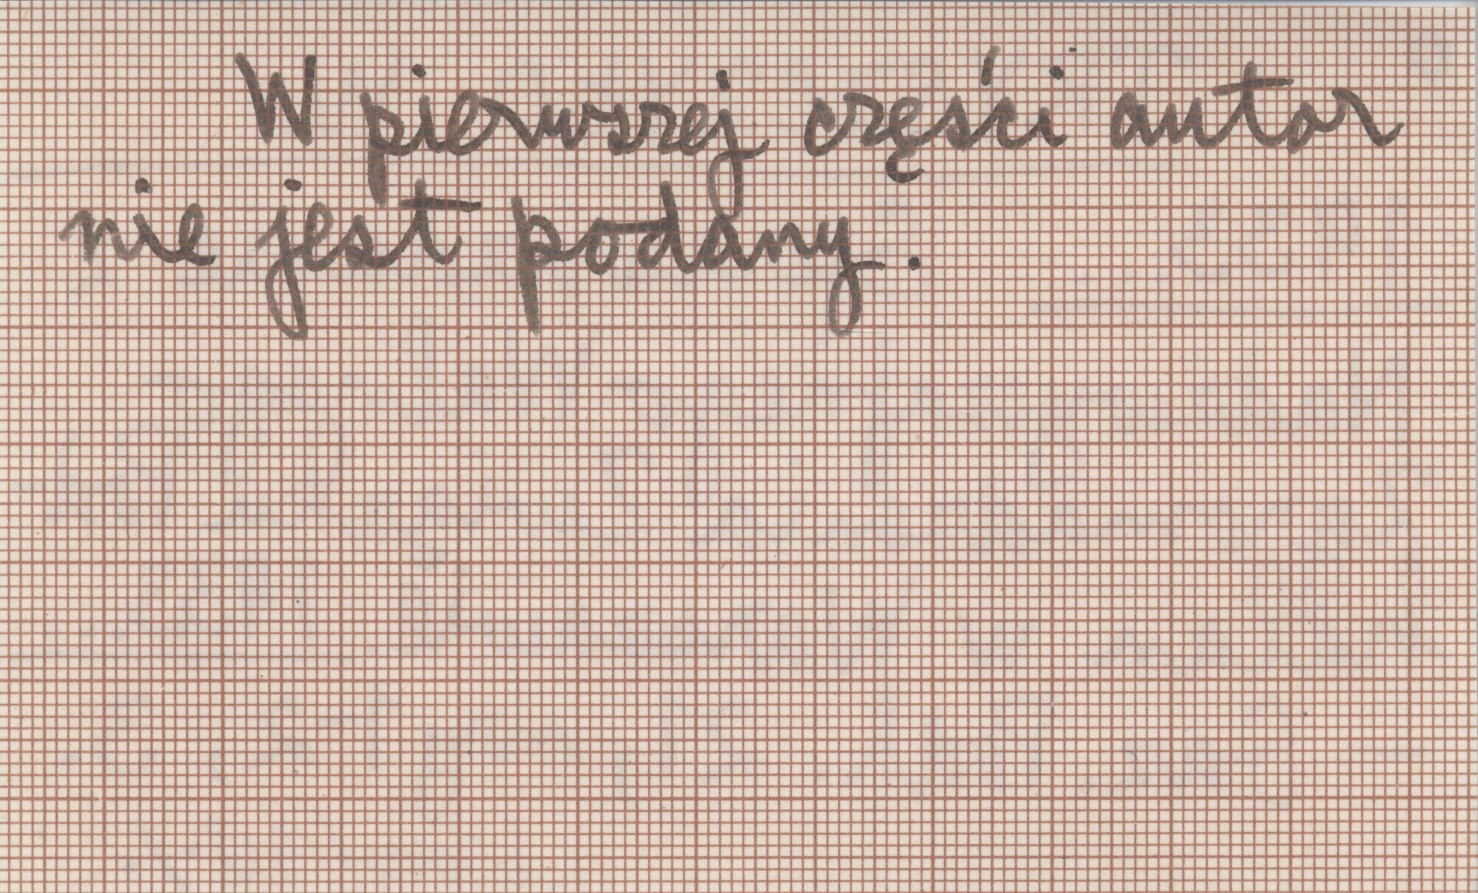 W pierwszej części autor
nie jest podany.